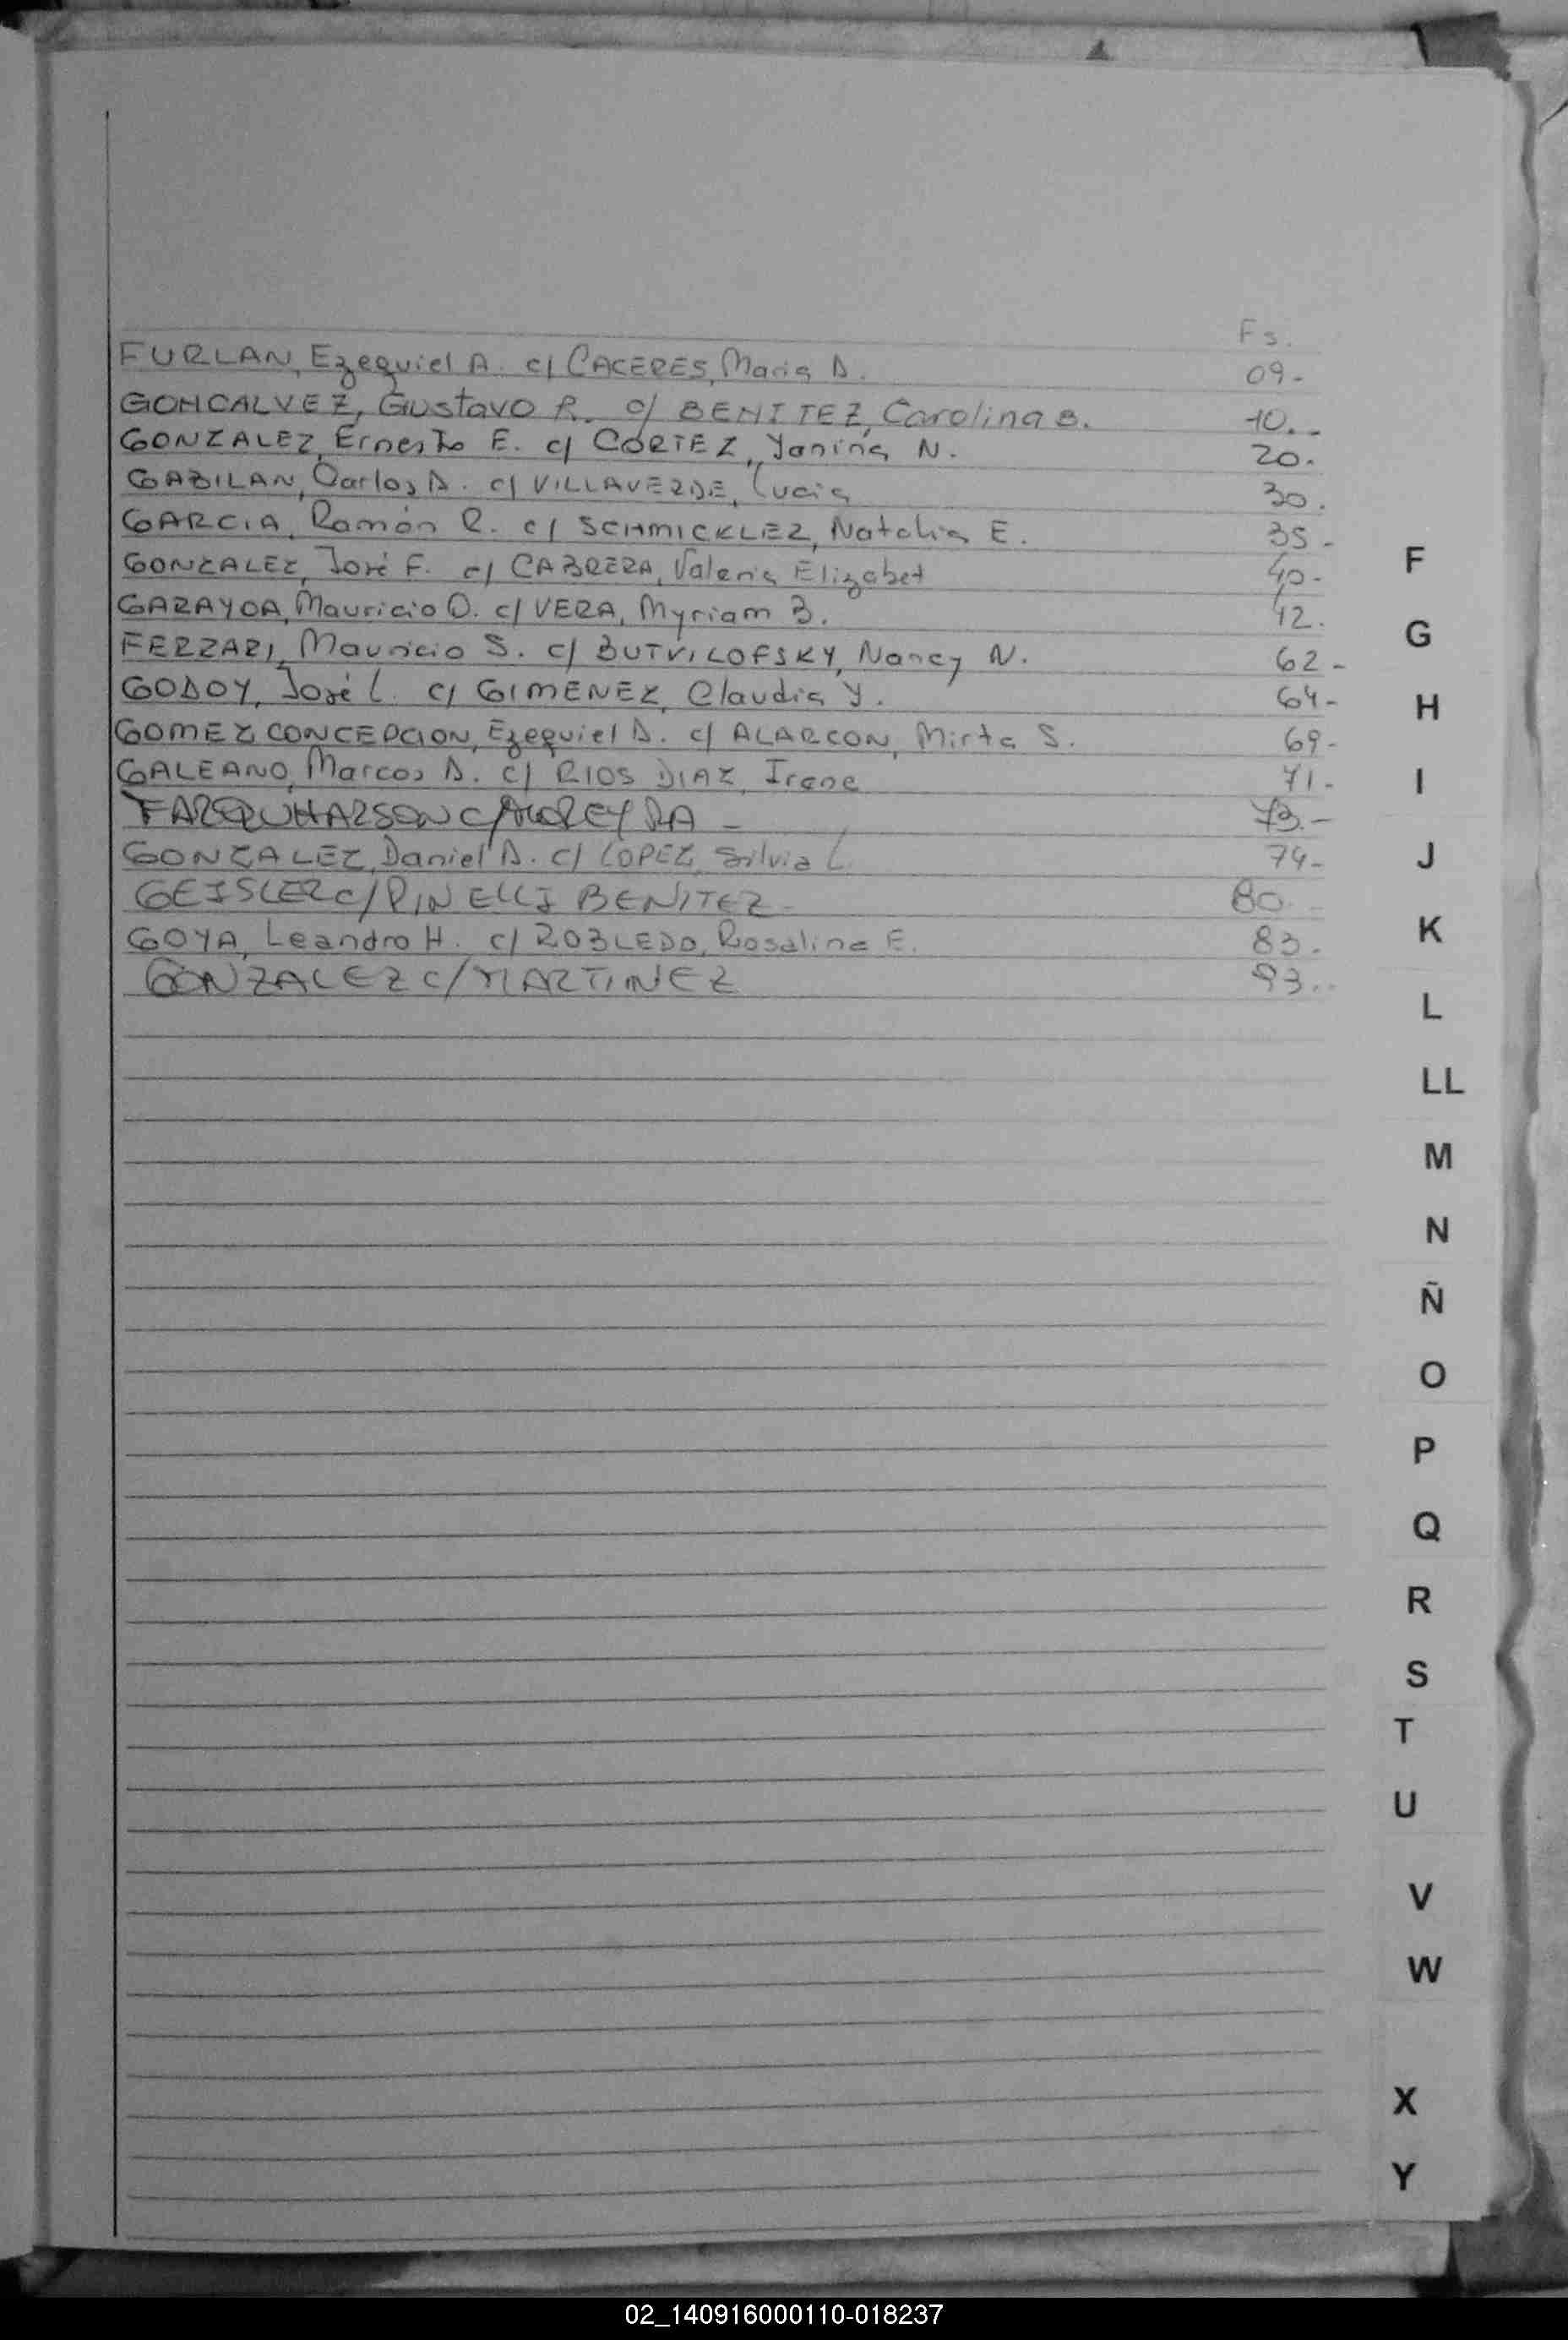 Fs.
FURLAN, Ezequiel A. c/ CACERES, Maria D. 09-
GONCALVEZ, Gustavo R. c/ BENITEZ, Carolina B. 10.-
GONZALEZ, Ernesto E. c/ CORTEZ, Yanina N. 20.
GABILAN, Carlos A. c/ VILLAVERDE, Lucia 30.
GARCIA, Ramón R. c/ SCHMICKLER, Natalia E. 35-
GONZALEZ, José F. c/ CABRERA, Valeria Elizabet 40-
GARAYOA, Mauricio O. c/ VERA, Myriam B. 42.
FERRARI, Mauricio S. c/ BUTVILOFSKY, Nancy N. 62-
GODOY, José L. c/ GIMENEZ, Claudia Y. 64-
GOMEZ CONCEPCION, Ezequiel D. c/ ALARCON, Mirta S. 69-
GALEANO, Marcos D. c/ RIOS DIAZ, Irene 71-
FARQUHARSON c/ 73.-
GONZALEZ, Daniel A. c/ LOPEZ, Silvia L. 74-
GEISLER c/ PINELLI BENITEZ- 80-
GOYA, Leandro H. c/ ROBLEDO, Rosalina E. 83.
GONZALEZ c/ MARTINEZ 93..
F
G
H
I
J
K
L
LL
M
N
Ñ
O
P
Q
R
S
T
U
V
W
X
Y
02_140916000110-018237